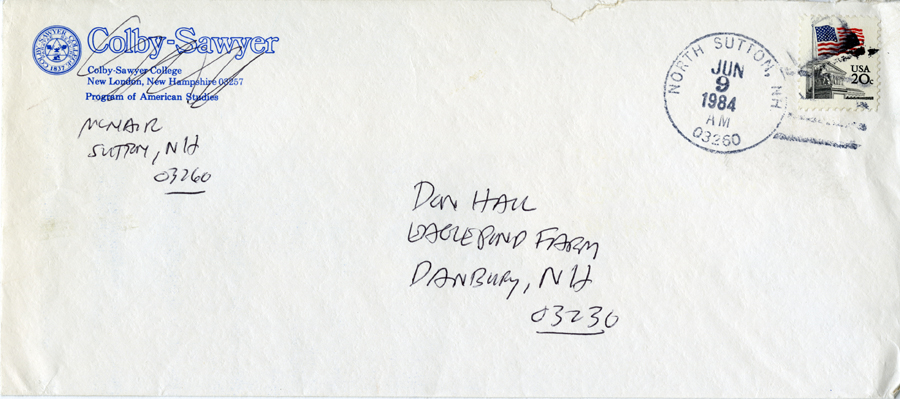 Colby-Sawyer
Colby-Sawyer College
New London, New Hampshire 03257
Program of American Studies
McNAIR
SUTTON, NH
03260
NORTH SUTTON, NH
JUN
9
1984
AM
03260
USA
20c
DON HALL
EAGLE POND FARM
DANBURY, NH
03230